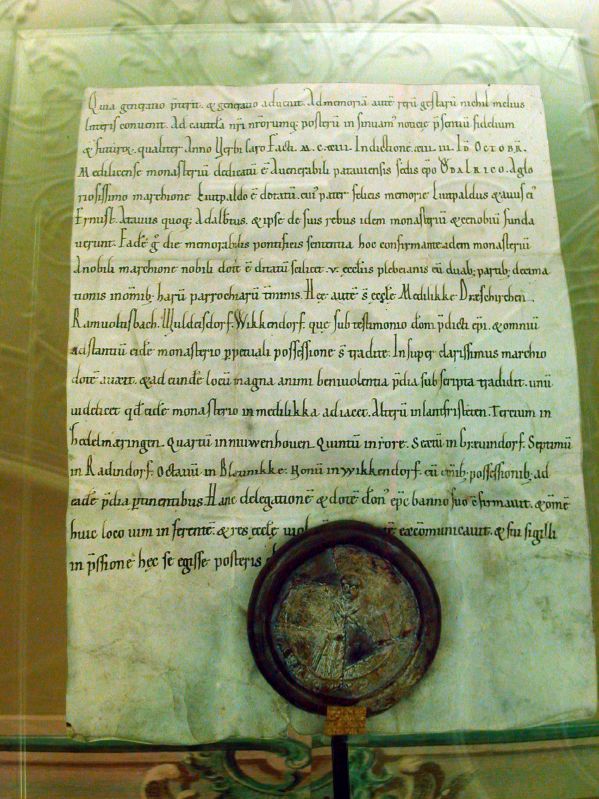 Quia generatio p̄terit. & generatio aduenit. Ad memoriā aute͞ rerū gestarū nichil melius
litteris conuenit. Ad cautelā nr̄i nr̄orumq; posterū insinuam' noticie p̄sentiū fidelium
& futuroꝝ. qualiter Anno Verbi Caro Facti. Indictione. OCTOBR̄.
Medilicense monasteriū dedicatū ē Auenerabili patauiensis sedis ep̄o ŎDALRICO. Aglo
riosissimo marchione Liutpaldo ē dotatū. cui' pater felicis memorie Liutpaldus & auus ei'
Ernust. Atauus quoq; Adalbtus. & ipse de suis rebus idem monasteriū & cenobiū funda
uerunt. Eadē ḡ die memorabilis pontificis sententia hoc confirmante idem monasteriū
A nobili marchione nobili dote ē ditatū scilicet. v. eccl̄iis plebeianis cū duab; partib; decima
tionis in om̄ib; harū parrochiarū t̄minis. Hęc aute͞ s̄ ęccl̄ę. Medilikke. Draeschirchen.
Ramuoltisbach. Wuldesdorf. Wikkendorf. que sub testimonio dom̄ p̄dicti ep̄i. & omniū
adstantiū eidē monasterio p̄petuali possessione s̄ tradite. Insuper clarissimus marchio
dotē auxit. & ad eundē locū magna animi beniuolentia p̄dia subscripta tradidit. unū
uidelicet qd̄ eidē monasterio in medilikka adiacet. Alterū in lanfristeten. Tercium in
hedelmaeringen. Quartū in niuwenhouen. Quintū in rore. Sextū in Grauindorf. Septimū
in Radindorf. Octauū in Bleumikke. Nonū in wikkendorf. cū om̄ib; possessionib; ad
eadē p̄dia p̄tinentibus. Hanc delegationē & dotē don̄ ep̄c banno suo c̄firmauit. & om̄ē
huic loco uim inferentē & res ęccl̄ę excōmunicauit. & sui sigilli
inp̄ssione hęc se egisse posteris